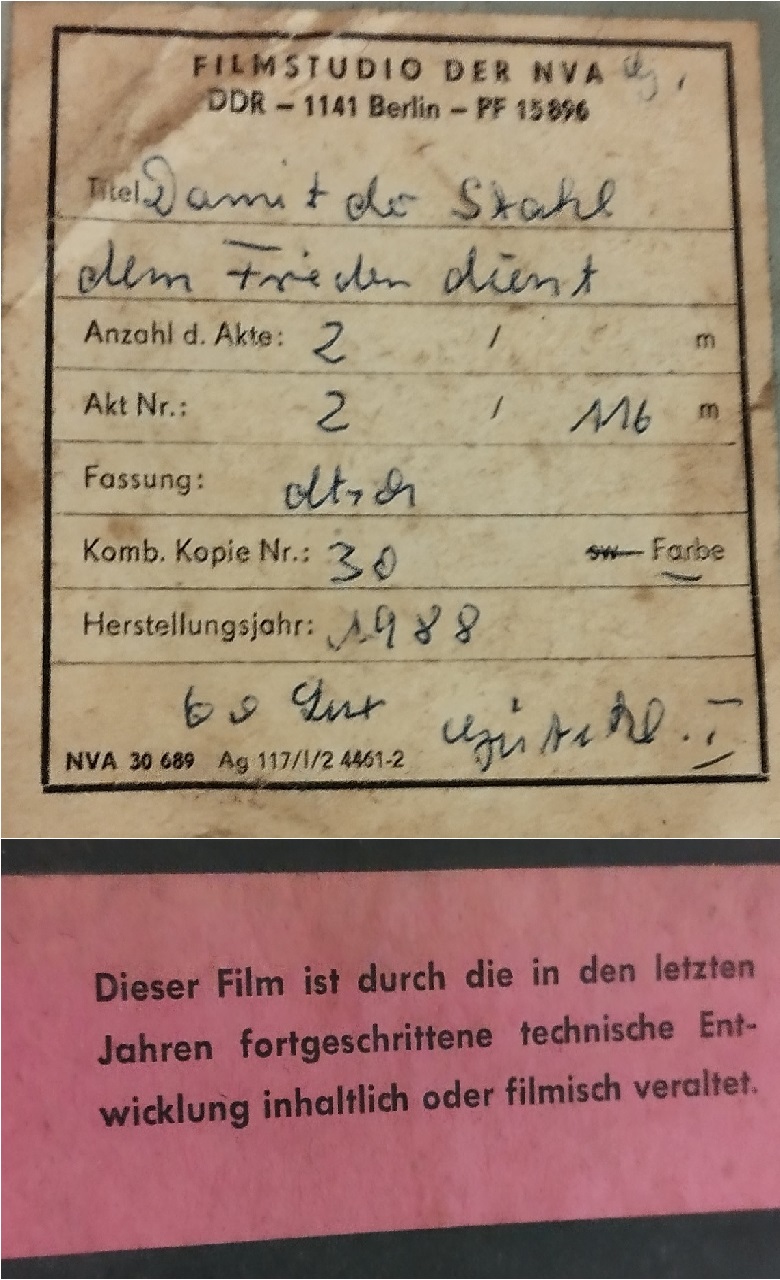 FILMSTUDIO DER NVA
DDR – 1141 Berlin – PF 15896
Titel Damit der Stahl
dem Frieden dient
Anzahl d. Akte: 2 / m
Akt Nr.: 2 / 116 m
Fassung: dtsch
Komb. Kopie Nr.: 30 sw Farbe
Herstellungsjahr: 1988
NVA 30 689 Ag 117/I/2 4461-2
Dieser Film ist durch die in den letzten
Jahren fortgeschrittene technische Ent-
wicklung inhaltlich oder filmisch veraltet.